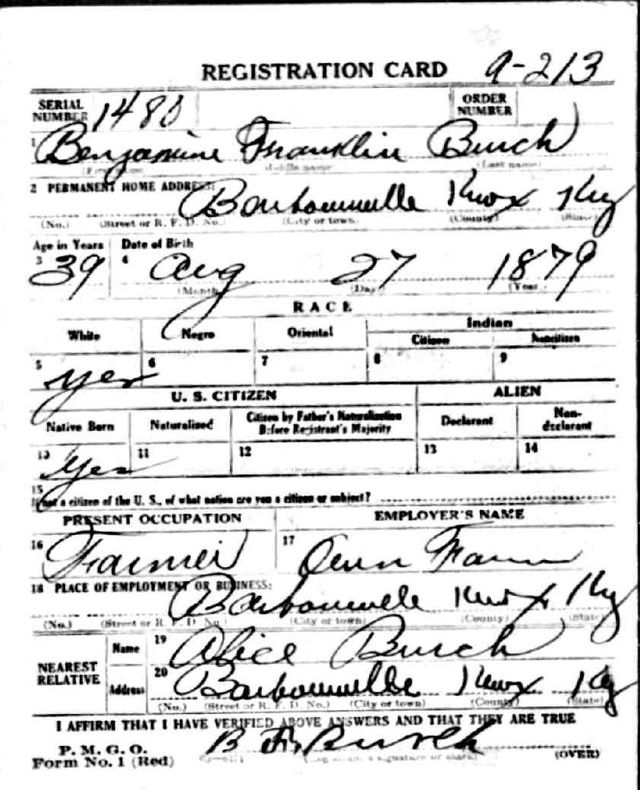 REGISTRATION CARD 9-213
SERIAL NUMBER 1480 ORDER NUMBER
1 Benjamine Franklin Burch
(First name) (Middle name) (Last name)
2 PERMANENT HOME ADDRESS: Barbourville Knox Ky
(No.) (Street or R. F. D. No.) (City or town) (County) (State)
Age in Years Date of Birth
3 39 4 Aug 27 1879
(Month) (Day) (Year)
RACE
White Negro Oriental Indian
Citizen Noncitizen
5 yes 6 7 8 9
U. S. CITIZEN ALIEN
Native Born Naturalized Citizen by Father's Naturalization Before Registrant's Majority Declarant Non-declarant
10 yes 11 12 13 14
15
If not a citizen of the U. S., of what nation are you a citizen or subject?
PRESENT OCCUPATION EMPLOYER'S NAME
16 Farmer 17 Own Farm
18 PLACE OF EMPLOYMENT OR BUSINESS: Barbourville Knox Ky
(No.) (Street or R. F. D. No.) (City or town) (County) (State)
NEAREST RELATIVE Name 19 Alice Burch
Address 20 Barbourville Knox Ky
(No.) (Street or R. F. D. No.) (City or town) (County) (State)
I AFFIRM THAT I HAVE VERIFIED ABOVE ANSWERS AND THAT THEY ARE TRUE
P. M. G. O.
Form No. 1 (Red) B F Burch (OVER)